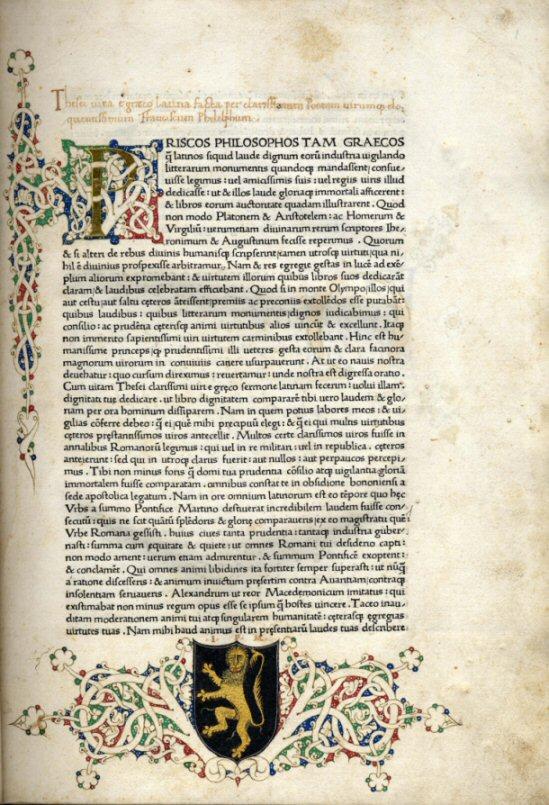 Thesei uita e graeco latina facta per clarissimum Poetam uirumq; elo
quentissimum Franciscum Philelphum.
PRISCOS PHILOSOPHOS TAM GRAECOS
q̃ latinos siquid laude dignum eorũ industria uigilando
litterarum monumentis quandoq; mandassent: consue
uisse legimus: uel amicissimis suis: uel regiis uiris illud
dedicasse: ut & illos laude gloriaq; immortali afficerent:
& libros eorum auctoritate quadam illustrarent. Quod
non modo Platonem & Aristotelem: ac Homerum &
Virgiliũ: uerumetiam diuinarum rerum scriptores Hie-
ronimum & Augustinum fecisse reperimus. Quorum
& si alteri de rebus diuinis humanisq; scripserint: tamen utrosq; uirtuti: qua ni-
hil ẽ diuinius prospexisse arbitramur. Nam & res egregie gestas in lucẽ ad exẽ-
plum aliorum expromebant: & uirtutem illorum quibus libros suos dedicarãt
claram: & laudibus celebratam efficiebant. Quod si in monte Olympo: illos: qui
aut cestu: aut saltu cęteros ãteissent: premiis ac preconiis extollẽdos esse putabãt:
quibus laudibus: quibus litterarum monumentis: dignos iudicabimus: qui
consilio: ac prudẽtia cęterisq; animi uirtutibus alios uincũt & excellunt. Itaq;
non immerito sapientissimi uiri uirtutem carminibus extollebant. Hinc est hu
manissime princeps: q prudentissimi illi ueteres gesta eorum & clara facinora
magnorum uirorum in conuiuiis canere usurpauerunt. At ut eo nauis nostra
deuehatur: quo cursum direximus: reuertamur: unde nostra est digressa oratio.
Cum uitam Thesei clarissimi uiri e gręco sermone latinam fecerim: uolui illam:
dignitati tuę dedicare. ut libro dignitatem compararẽ tibi uero laudem & glo-
riam per ora hominum dissiparem. Nam in quem potius labores meos: & ui-
gilias cõferre debeo: q̃ ei: quẽ mihi precipuũ elegi: & q̃ ei qui multis uirtutibus
cęteros pręstantissimos uiros antecellit. Multos certe clarissimos uiros fuisse in
annalibus Romanorũ legimus: qui uel in re militari: uel in republica. cęteros
anteierunt: sed qui in utroq; clarus fuerit: aut nullos: aut perpaucos percepi-
mus. Tibi non minus fons q̃ domi tua prudentia cõsilio atq; uigilantia: gloriã
immortalem fuisse comparatam. omnibus constat te in obsidione bononiensi a
sede apostolica legatum. Nam in ore omnium latinorum est eo tẽpore quo hęc
Vrbs a summo Pontifice Martino desciuerat incredibilem laudem fuisse con-
secutũ: quis ne scit quãtũ splẽdoris & glorię comparaueris: ex eo magistratu quẽ
Vrbe Romana gessisti. huius ciues tanta prudentia: tantaq; industria guber
nasti: summa cum equitate & quiete: ut omnes Romani tui desiderio capti:
non modo ament: uerum etiam admirentur. & summum Pontificẽ exoptent:
& conclamẽt. Qui omnes animi libidines ita fortiter semper superasti: ut nũq̃
a ratione discesseris: & animum inuictum presertim contra Auaritiam: contraq;
insolentiam seruaueris. Alexandrum ut reor Macedemonicum imitatus: qui
existimabat non minus regum opus esse se ipsum q̃ hostes uincere. Taceo inau
ditam moderationem animi tui atq; singularem humanitatẽ: cęterasq; egregias
uirtutes tuas. Nam mihi haud animus est in pręsentiarũ laudes tuas describere